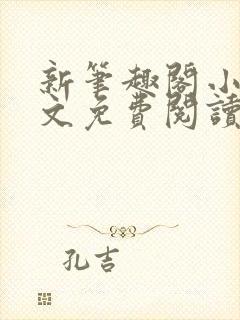 新筆趣閣小
文免費閱讀
孔吉